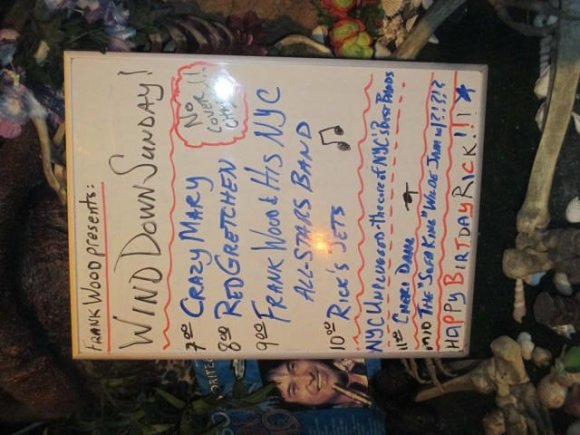 FRANK WOOD presents:
WIND DOWN SUNDAY!
NO
COVER!!
7 00 CRAZY MARY
8 00 RED GRETCHEN
9 00 FRANK WOOD & HIS NYC
ALL-STARS BAND
10 00 RICK'S JETS
NYC UNPLUGGED: The core of NYC's BEST BANDS
11
MID THE "SOFA KING" WILDE JAM w/?!?!?
HAPPY BIRTDAY RICK!!!